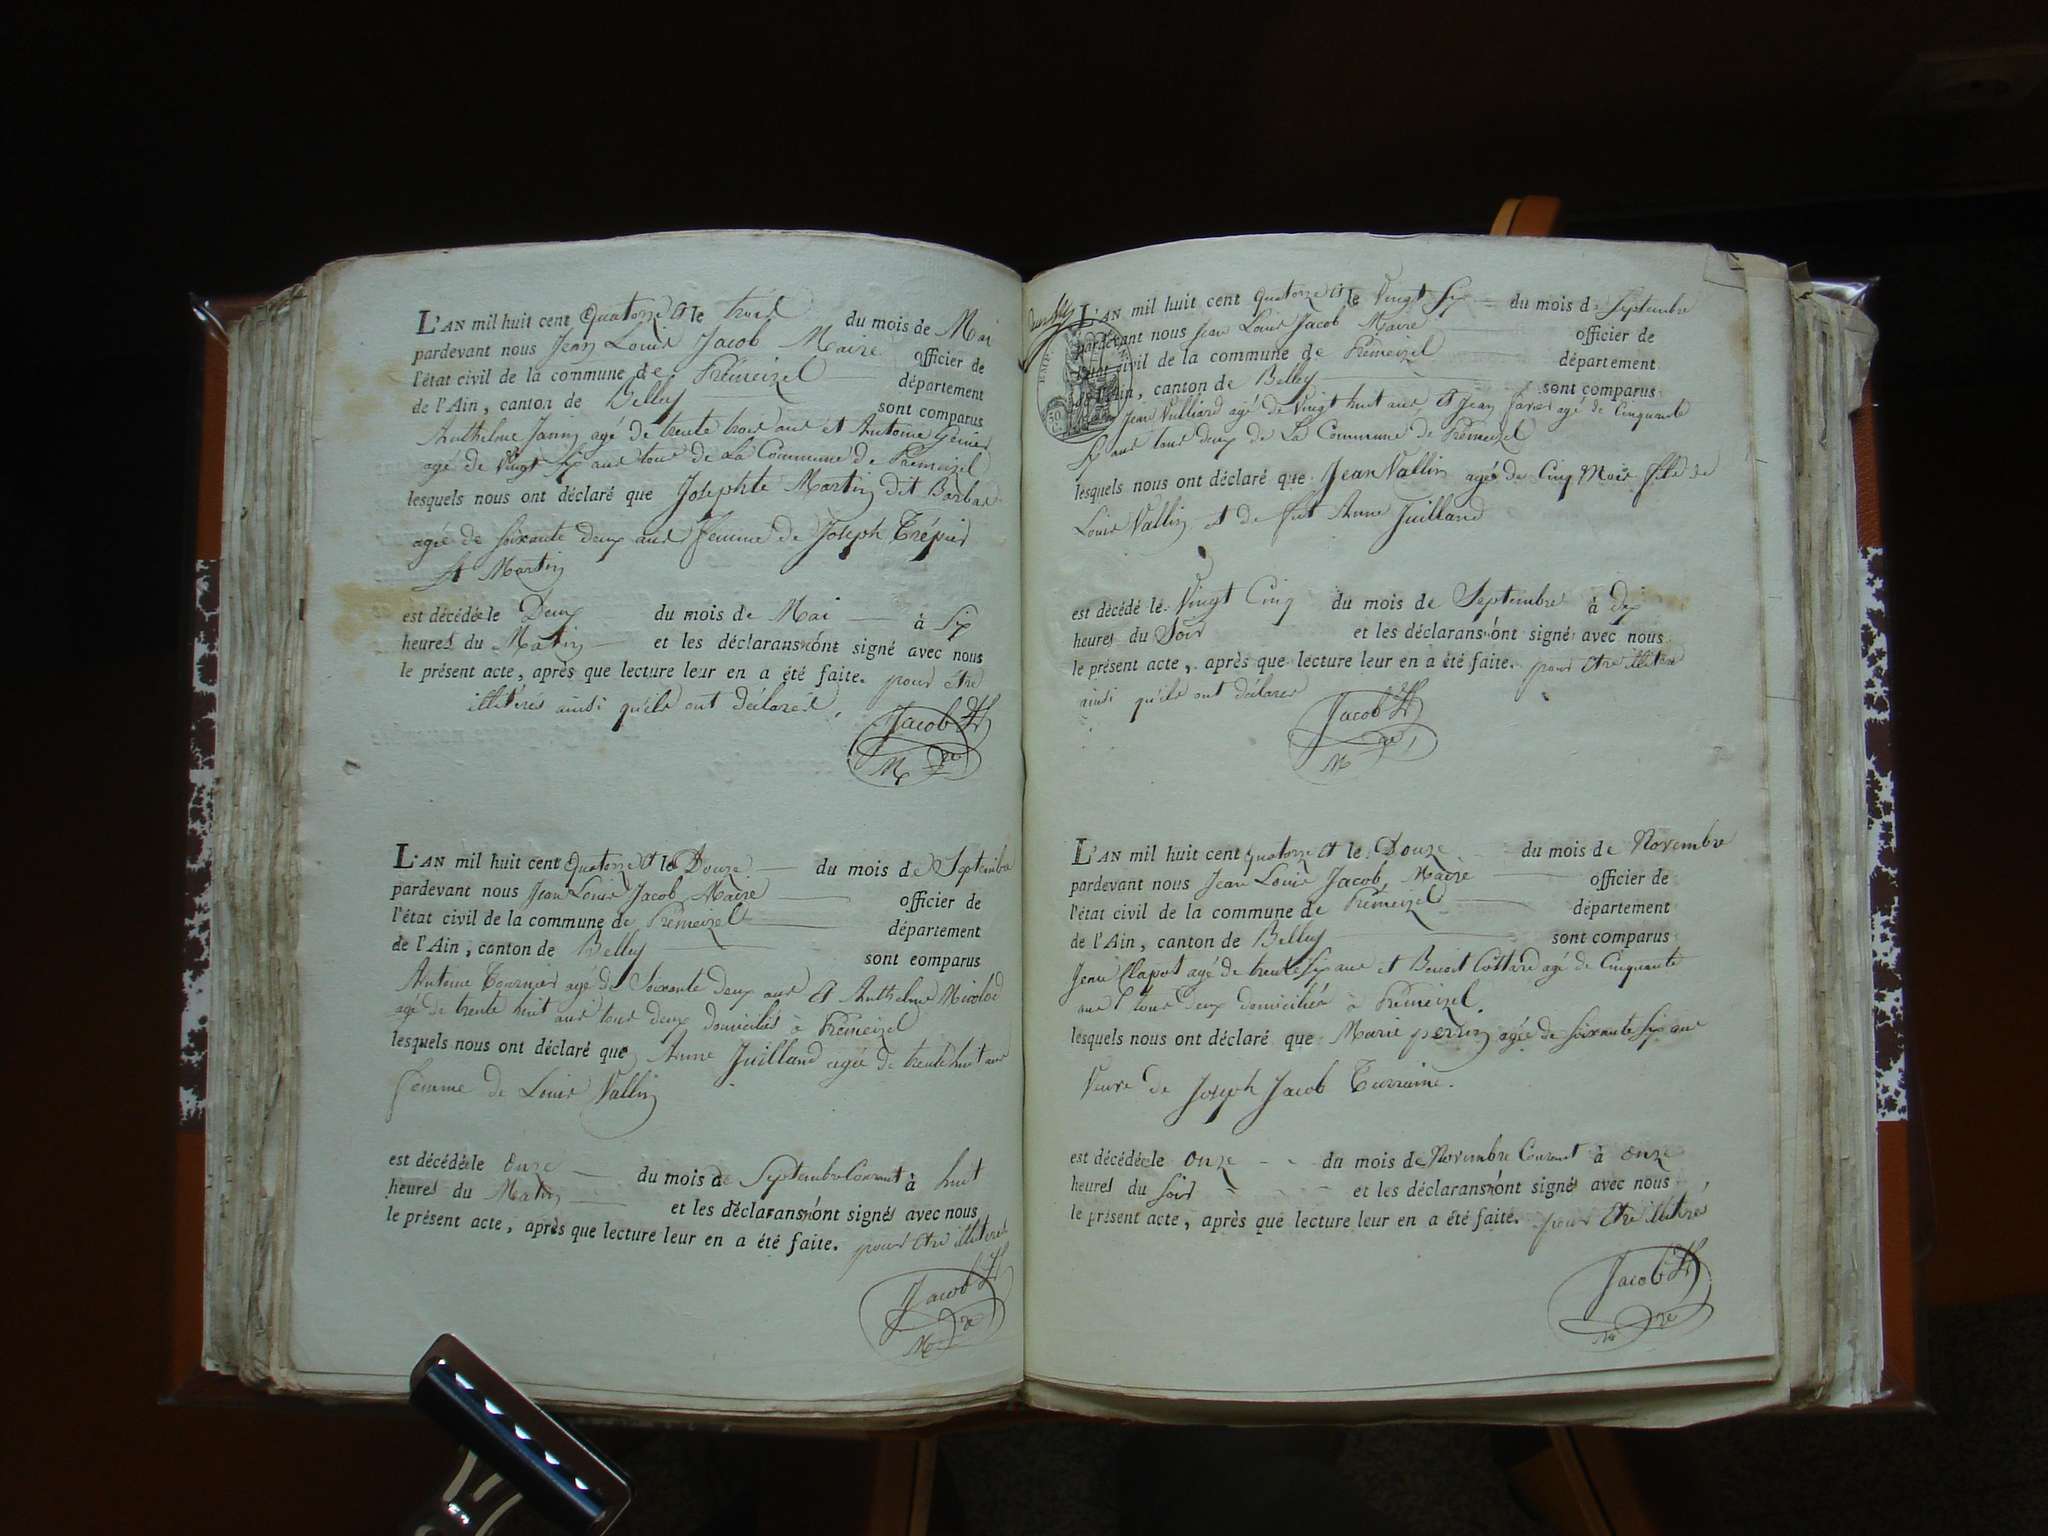 L'AN mil huit cent Quatorze et le trois du mois de Mai
pardevant nous Jean Louis Jacob Maire officier de
l'état civil de la commune de Prémeizel département
de l'Ain, canton de Belley sont comparus
Anthelme Janin agé de trente trois ans et Antoine
agé de Vingt Six ans tous de La Commune de Prémeizel
lesquels nous ont déclaré que Josephte Martin dit Barbas
agée de Soixante Deux ans femme de Joseph Trépier
Martin
est décédée le Deux du mois de Mai à Six
heures du Matin et les déclarans n'ont signé avec nous
le présent acte, après que lecture leur en a été faite. pour etre
illitérés ainsi qu'ils ont déclarés,
Jacob
Mre
L'AN mil huit cent Quatorze et le Douze du mois de Septembre
pardevant nous Jean Louis Jacob Maire officier de
l'état civil de la commune de Prémeizel département
de l'Ain, canton de Belley sont comparus
Antoine Tournier agé de Soixante deux ans et Anthelme Nicolod
agé de trente huit ans tous deux domiciliés à Prémeizel
lesquels nous ont déclaré que Anne Juilland agée de trente huit ans
femme de Louis Vallin
est décédée le Onze du mois de Septembre Courant à huit
heures du Matin et les déclarans n'ont signés avec nous
le présent acte, après que lecture leur en a été faite. pour etre illitérés
Jacob
Mre
L'AN mil huit cent Quatorze et le Vingt Six du mois de Septembre
pardevant nous Jean Louis Jacob Maire officier de
l'état civil de la commune de Prémeizel département
de l'Ain, canton de Belley sont comparus
Jean Vulliard agé de Vingt huit ans et Jean favier agé de Cinquante
Six ans tous deux de La Commune de Prémeizel
lesquels nous ont déclaré que Jean Vallin agé de Cinq Mois fils de
Louis Vallin et de fut Anne Juilland
est décédé le Vingt Cinq du mois de Septembre à dix
heures du Soir et les déclarans n'ont signé avec nous
le présent acte, après que lecture leur en a été faite. pour etre illitérés
ainsi qu'ils ont déclarés
Jacob
Mre
L'AN mil huit cent Quatorze et le Douze du mois de Novembre
pardevant nous Jean Louis Jacob Maire officier de
l'état civil de la commune de Prémeizel département
de l'Ain, canton de Belley sont comparus
Jean Clapot agé de trente Six ans et Benoit Cottard agé de Cinquante
ans tous deux domiciliés à Prémeizel
lesquels nous ont déclaré que Marie perrin agée de Soixante Six ans
Veuve de Joseph Jacob Turraine.
est décédée le Onze du mois de Novembre Courant à Onze
heures du Soir et les déclarans n'ont signés avec nous
le présent acte, après que lecture leur en a été faite. pour etre illitérés,
Jacob
Mre